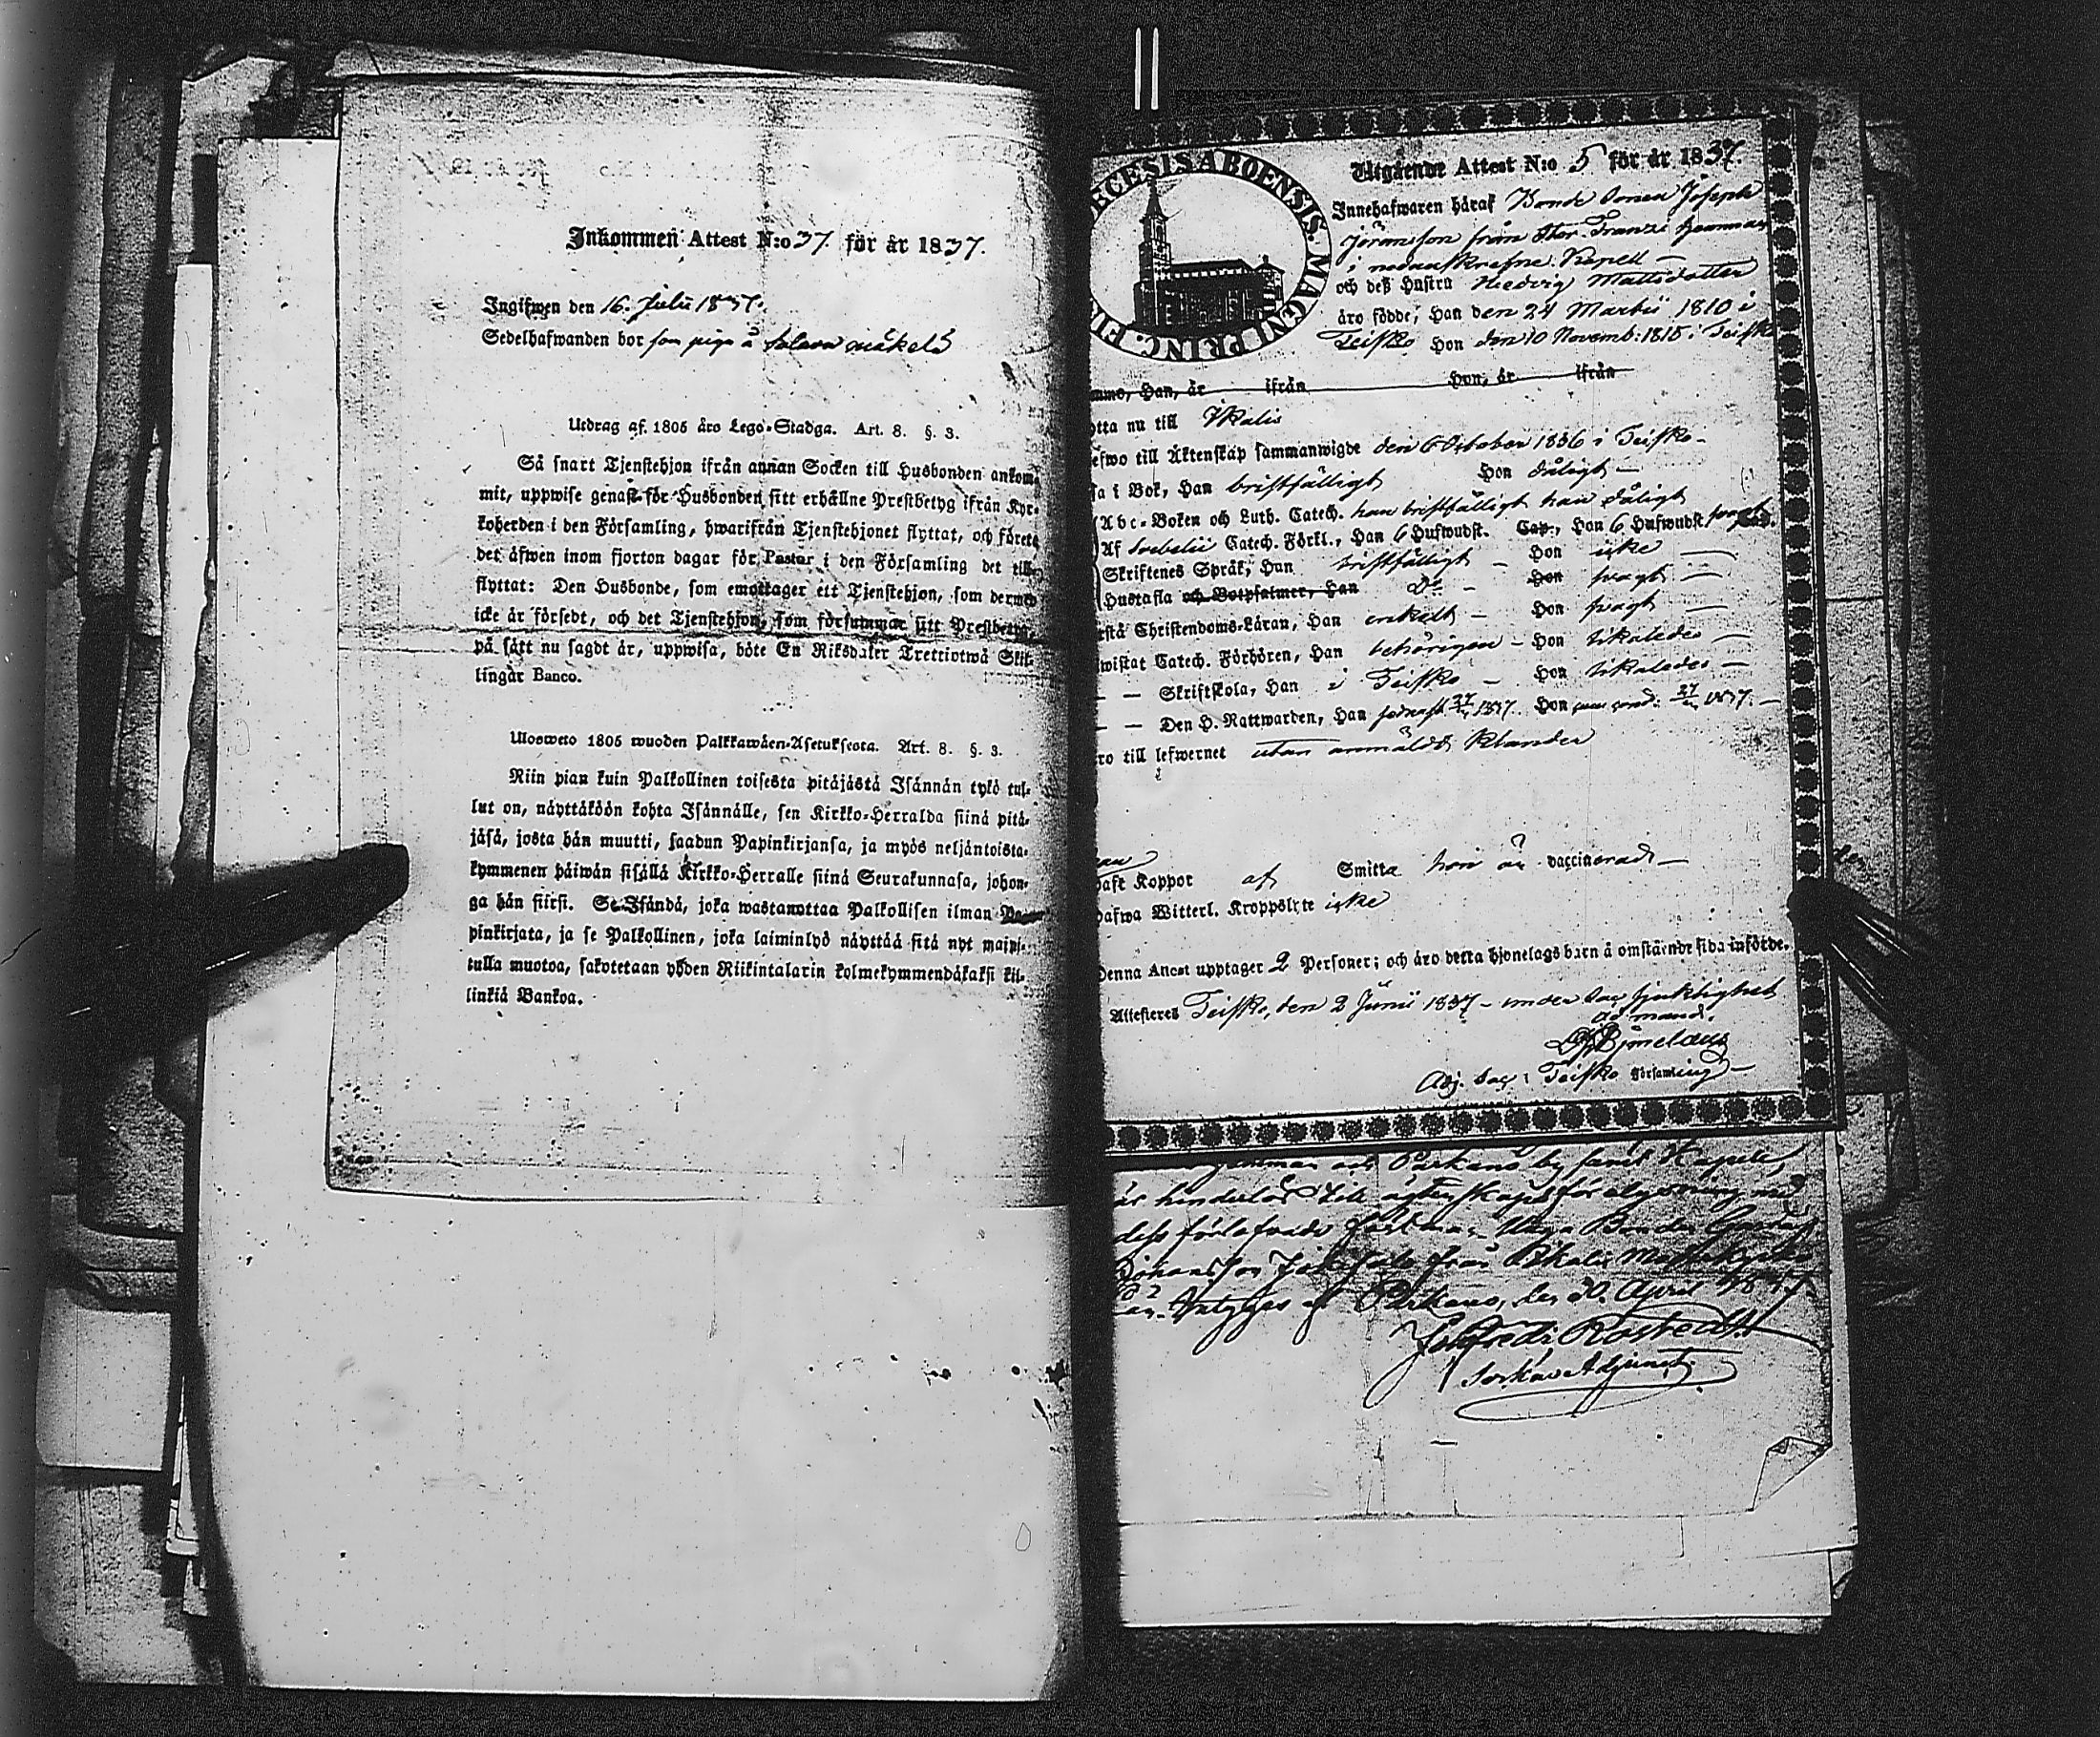 Inkommen Attest N:o 37. för år 1837.
Ingifwen den 16. Julii 1837.
Sedelhafwanden bor som piga å Salava
Utdrag af 1805 års Lego-Stadga. Art. 8. §. 3.
Så snart Tjenstehjon ifrån annan Socken till Husbonden ankom-
mit, uppwise genast för Husbonden sitt erhållne Prestbetyg ifrån Kyr-
koherden i den Församling, hwarifrån Tjenstehjonet flyttat, och förete
det åfwen inom fjorton dagar för Pastor i den Församling det till-
flyttat: Den Husbonde, som emottager ett Tjenstehjon, som dermed
icke år försedt, och det Tjenstehjon, som försummar sitt Prestbetyg,
på sått nu sagdt år, uppwisa, böte En Riksdaler Trettiotwå Skil-
lingar Banco.
Ulosweto 1805 wuoden Palkkawåen-Asetuksesta. Art. 8. §. 3.
Niin pian kuin Palkollinen toisesta pitåjåstå Isånnån tykö tul-
lut on, nåyttåköön kohta Isånnålle, sen Kirkko-Herralda siinå pitå-
jåså, josta hån muutti, saadun Papinkirjansa, ja myös neljåntoista-
kymmenen påiwån sisållå Kirkko-Herralle siinå Seurakunnasa, johon-
ga hån siirsi. Se Isåndå, joka wastanottaa Palkollisen ilman Pa-
pinkirjata, ja se Palkollinen, joka laiminlyö nåyttåå sitå nyt maini-
tulla muotoa, sakotetaan yhden Riikintalarin kolmekymmendåkaksi kil-
linkiå Bankoa.
ECESIS ABOENSIS. MAGNI PRINC. FI
Utgående Attest N:o 5 för år 1837.
Innehafwaren håraf Bonde Sonen Joseph
Jöransson från Stor Franzi hemman
i nedanskrefne Kapell —
och deß Hustru Hedvig Mattsdotter
åro födde, Han den 24 Martii 1810 i
Teisko Hon den 10 Novemb: 1818 i Teisko
Han, år ifrån Hon, år ifrån
otta nu till Ikalis
efwo till Åktenskap sammanwigde den 6 October 1836 i Teisko –
sa i Bok, Han bristfälligt Hon dåligt —
Abc-Boken och Luth. Catech. han bristfälligt hon dåligt
Af Svebelii Catech. Förkl., Han 6 Hufwudst. Cap., Hon 6 Hufwudst. svagt Cap.
Skriftenes Språk, Han bristfälligt – Hon icke —
Hustafla och Botpsalmer, Han D:o – Hon svagt —
rstå Christendoms-Låran, Han enkelt – Hon svagt —
wistat Catech. Förhören, Han behörigen – Hon likaledes —
— — Skriftskola, Han i Teisko – Hon likaledes —
— — Den H. Nattwarden, Han sednast 1837. Hon 1837. —
ro till lefwernet utan anmäldt klander
haft Koppor af Smitta hon är vaccinerad —
hafwa Witterl. Kroppslyte icke
Denna Attest upptager 2 Personer; och åro detta hjonelags barn å omstående sida införde.
Attesteres Teisko, den 2 Junii 1837 –
ad mand.
Adj. Sac. i Teisko Församling —
Parkano by samt Kapell,
är hinderlös till ägtenskaps för
dess förlofvade Bonden
Johansson från Ikalis Moderkyrka
Parkano, den 30. April 1837.
Rostedt
Sockne Adjunct.